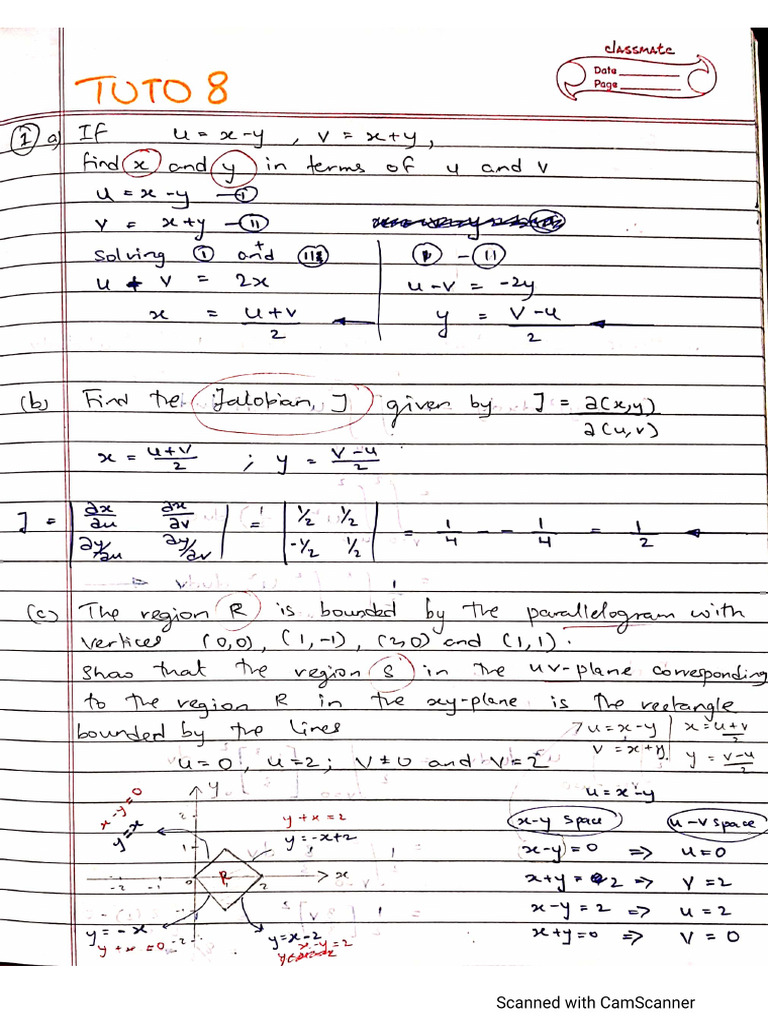 classmate
Date
Page
TUTO 8
① a) If u = x-y , v = x+y ,
find x and y in terms of u and v
u = x-y —Ⓘ
v = x+y —Ⓘⓘ
Solving Ⓘ and
u + v = 2x
x = u+v/2
Ⓘ - ⒾⒾ
u-v = -2y
y = v-u/2
(b) Find the Jacobian, J given by J = ∂(x,y)/∂(u,v)
x = u+v/2 ; y = v-u/2
J = | ∂x/∂u ∂x/∂v | = | 1/2 1/2 | = 1/4 - - 1/4 = 1/2
| ∂y/∂u ∂y/∂v | | -1/2 1/2 |
(c) The region R is bounded by the parallelogram with
vertices (0,0), (1,-1), (2,0) and (1,1).
Show that the region S in the uv-plane corresponding
to the region R in the xy-plane is the rectangle
bounded by the lines
u=x-y | x=u+v/2
v=x+y | y=v-u/2
u=0, u=2; v=0 and v=2
u=x-y
x-y=0
y=x
y
y+x=2
y=-x+2
x-y space u-v space
x-y=0 => u=0
x+y=2 => v=2
x-y=2 => u=2
x+y=0 => v=0
2
1
-2 -1 0 R 2 x
-2
y=-x
y+x=0
y=x-2
x-y=2
Scanned with CamScanner